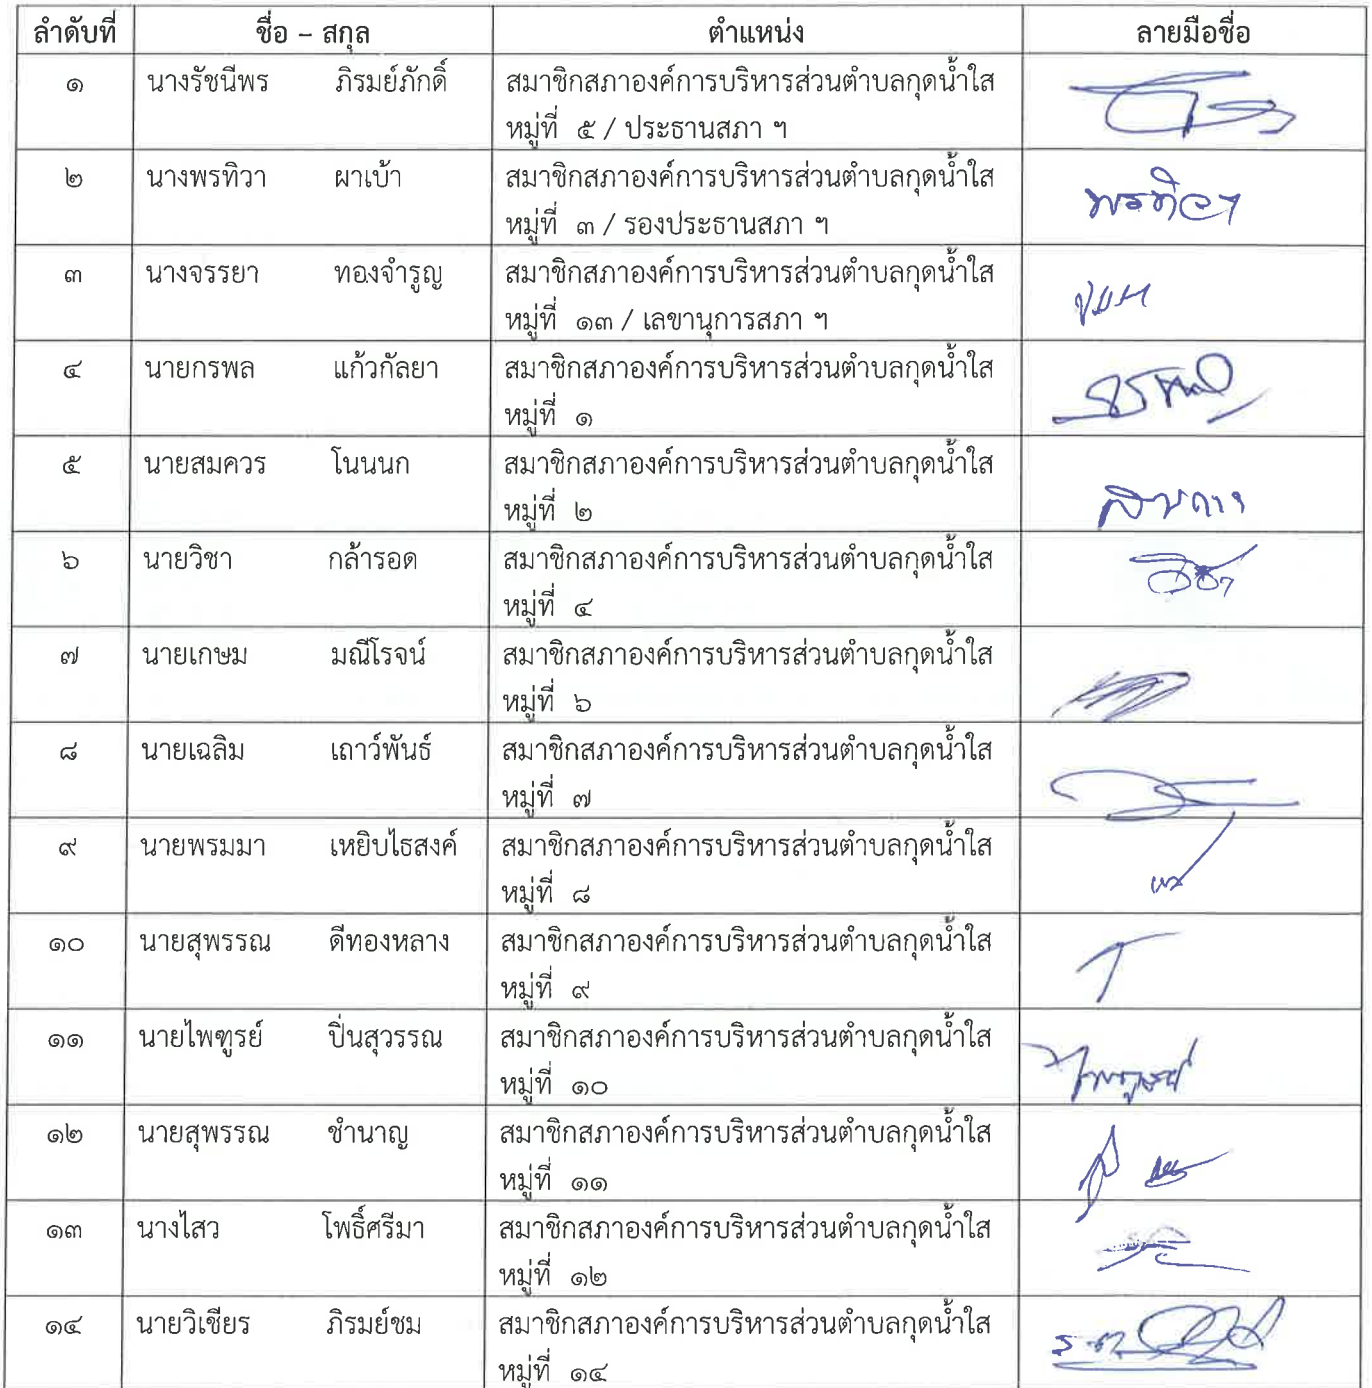 ลำดับที่ ชื่อ – สกุล ตำแหน่ง ลายมือชื่อ
๑ นางรัชนีพร ภิรมย์ภักดิ์ สมาชิกสภาองค์การบริหารส่วนตำบลกุดน้ำใส
หมู่ที่ ๕ / ประธานสภา ฯ
๒ นางพรทิวา ผาเบ้า สมาชิกสภาองค์การบริหารส่วนตำบลกุดน้ำใส พรทิวา
หมู่ที่ ๓ / รองประธานสภา ฯ
๓ นางจรรยา ทองจำรูญ สมาชิกสภาองค์การบริหารส่วนตำบลกุดน้ำใส
หมู่ที่ ๑๓ / เลขานุการสภา ฯ
๔ นายกรพล แก้วกัลยา สมาชิกสภาองค์การบริหารส่วนตำบลกุดน้ำใส
หมู่ที่ ๑
๕ นายสมควร โนนนก สมาชิกสภาองค์การบริหารส่วนตำบลกุดน้ำใส
หมู่ที่ ๒
๖ นายวิชา กล้ารอด สมาชิกสภาองค์การบริหารส่วนตำบลกุดน้ำใส วิชา
หมู่ที่ ๔
๗ นายเกษม มณีโรจน์ สมาชิกสภาองค์การบริหารส่วนตำบลกุดน้ำใส
หมู่ที่ ๖
๘ นายเฉลิม เถาว์พันธ์ สมาชิกสภาองค์การบริหารส่วนตำบลกุดน้ำใส
หมู่ที่ ๗
๙ นายพรมมา เหยิบไธสงค์ สมาชิกสภาองค์การบริหารส่วนตำบลกุดน้ำใส
หมู่ที่ ๘
๑๐ นายสุพรรณ ดีทองหลาง สมาชิกสภาองค์การบริหารส่วนตำบลกุดน้ำใส
หมู่ที่ ๙
๑๑ นายไพฑูรย์ ปิ่นสุวรรณ สมาชิกสภาองค์การบริหารส่วนตำบลกุดน้ำใส ไพฑูรย์
หมู่ที่ ๑๐
๑๒ นายสุพรรณ ชำนาญ สมาชิกสภาองค์การบริหารส่วนตำบลกุดน้ำใส
หมู่ที่ ๑๑
๑๓ นางไสว โพธิ์ศรีมา สมาชิกสภาองค์การบริหารส่วนตำบลกุดน้ำใส
หมู่ที่ ๑๒
๑๔ นายวิเชียร ภิรมย์ชม สมาชิกสภาองค์การบริหารส่วนตำบลกุดน้ำใส
หมู่ที่ ๑๔